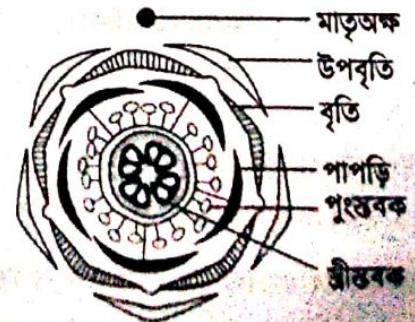 মাতৃঅক্ষ
উপবৃতি
বৃতি
পাপড়ি
পুংস্তবক
স্ত্রীস্তবক